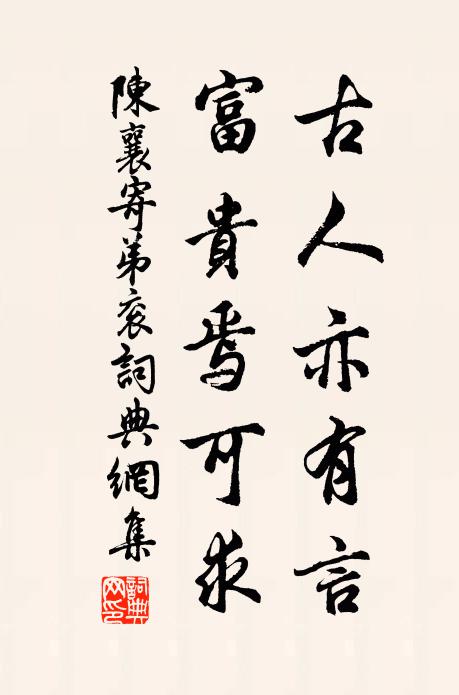 古人亦有言
富貴焉可求
陳襄寄弟袞詞典網集
詞典網印